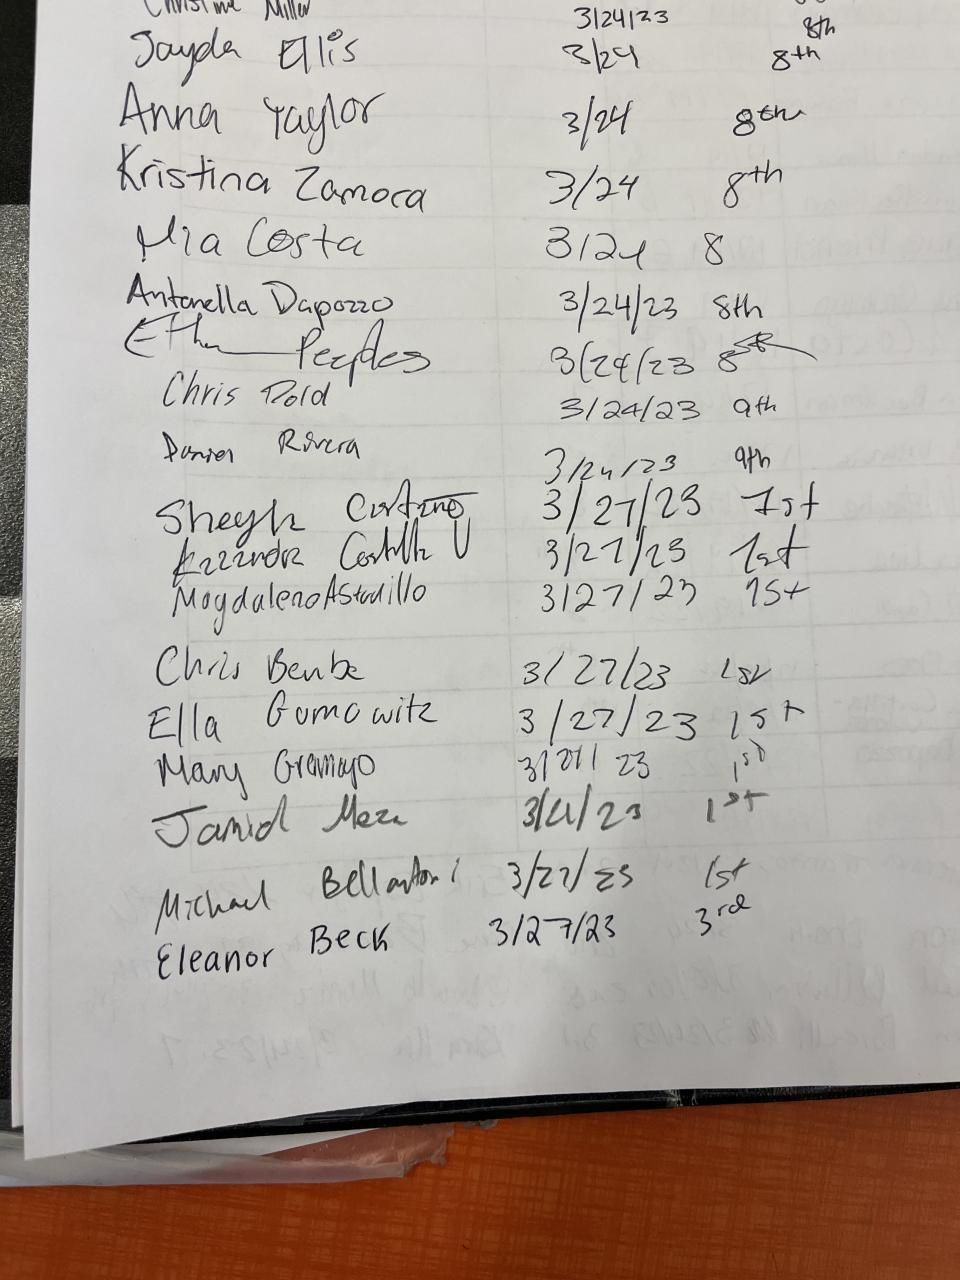 Christine Miller 3/24/23 8th
Jayda Ellis 3/24 8th
Anna Taylor 3/24 8th
Kristina Zamora 3/24 8th
Mia Costa 3/24 8
Antonella Dapozzo 3/24/23 8th
Ethan Peeples 3/24/23 8th
Chris Dold 3/24/23 9th
Rivera 3/24/23 9th
3/27/23 1st
3/27/23 1st
Magdaleno Astudillo 3/27/23 1st
Chris 3/27/23 1st
Ella Gomowitz 3/27/23 1st
Mary Gramajo 3/27/23 1st
Jamid Meza 3/27/23 1st
Michael Bellantoni 3/27/23 1st
Eleanor Beck 3/27/23 3rd